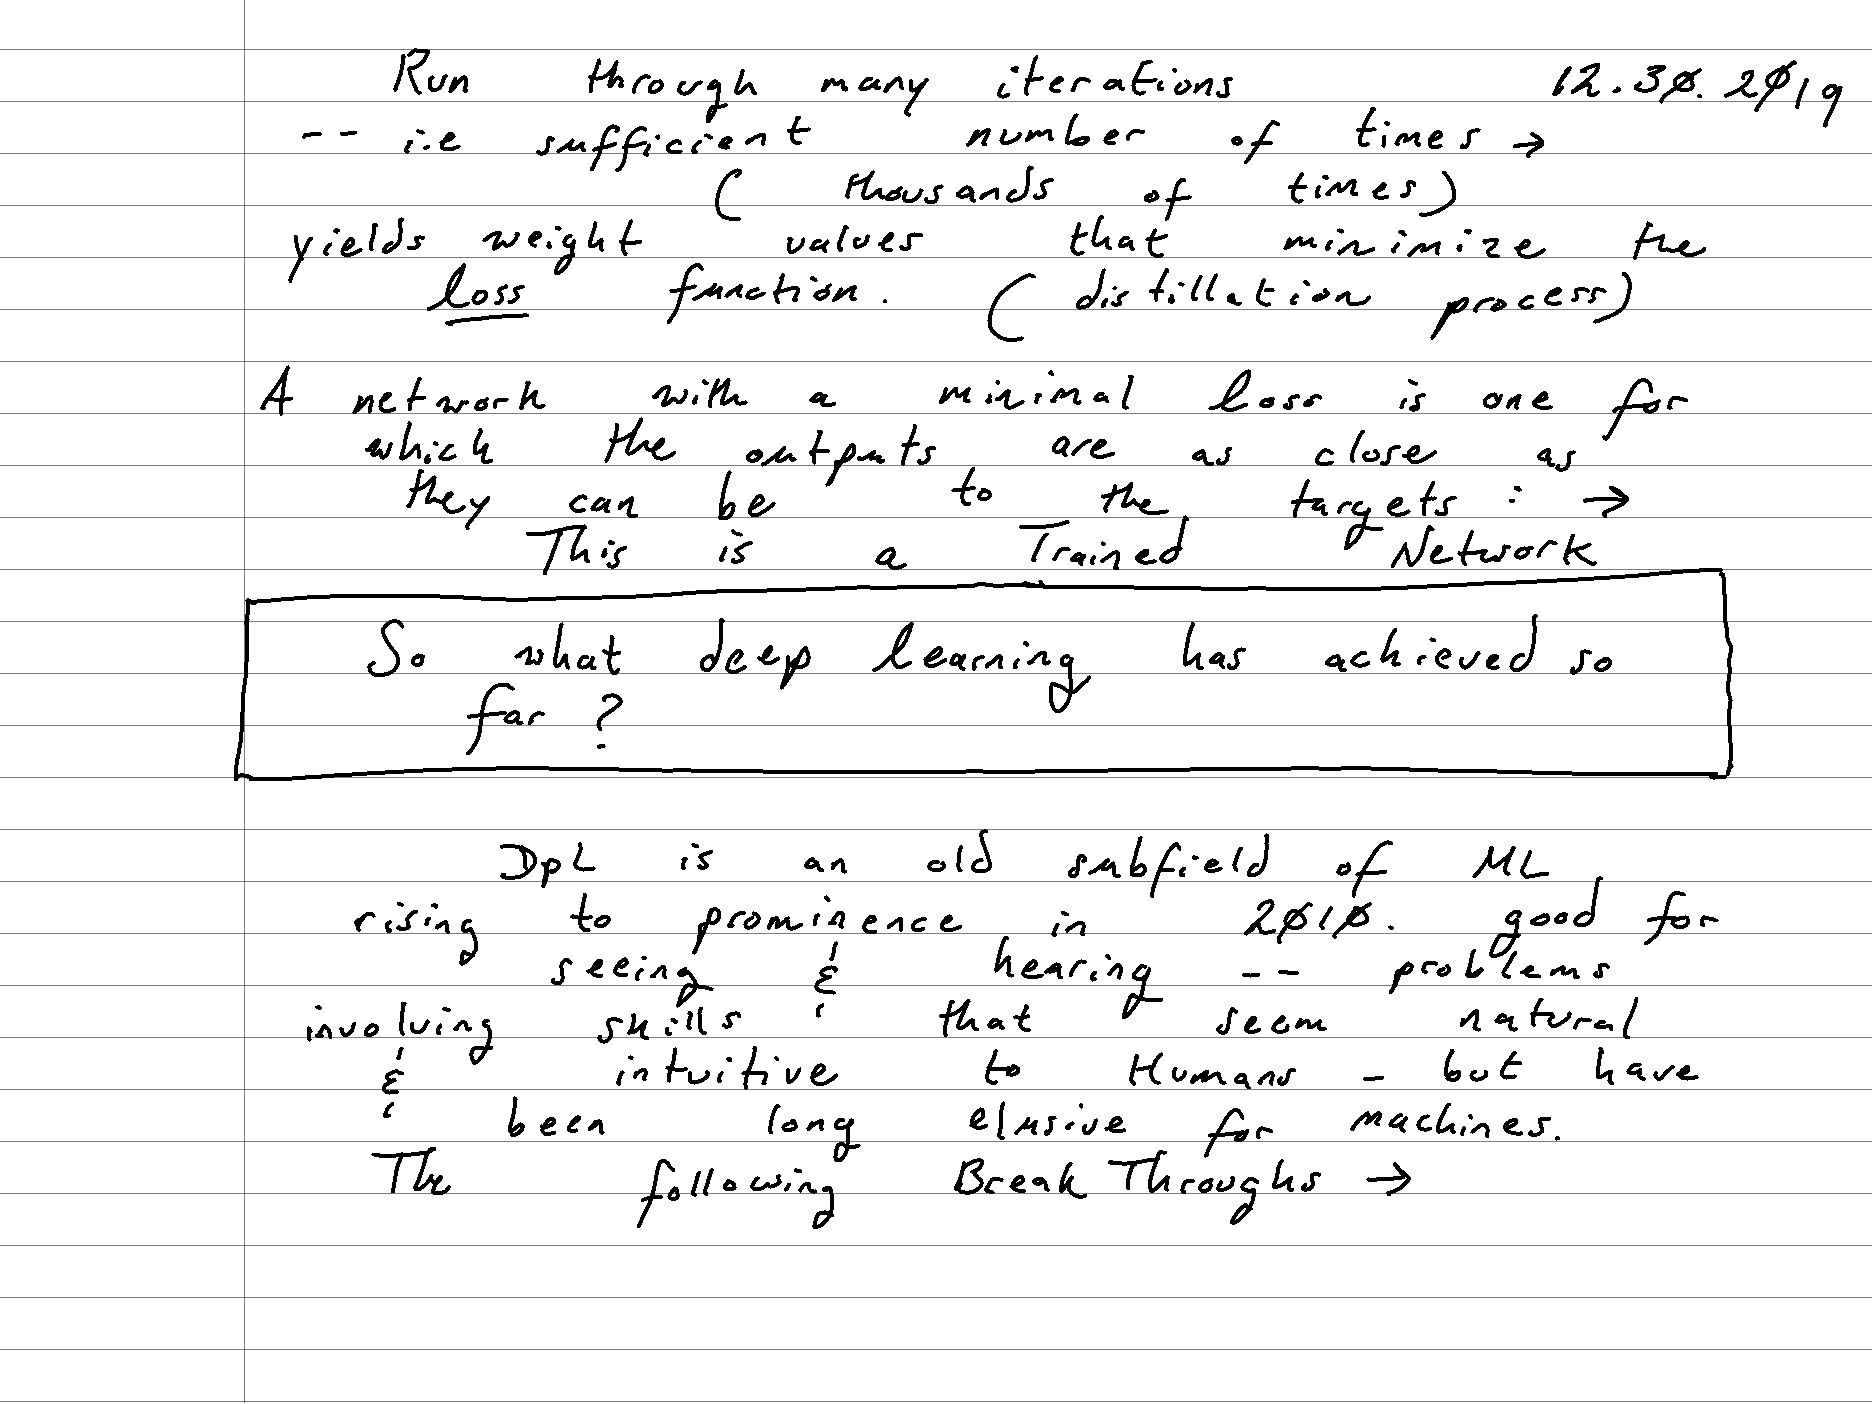 Run through many iterations 12.30.2019
-- i.e sufficient number of times →
( thousands of times)
yields weight values that minimize the
loss function. ( distillation process)
A network with a minimal loss is one for
which the outputs are as close as
they can be to the targets : →
This is a Trained Network
So what deep learning has achieved so
far ?
DpL is an old subfield of ML,
rising to prominence in 2010. good for
seeing & hearing -- problems
involving skills that seem natural
& intuitive to Humans - but have
been long elusive for machines.
The following BreakThroughs →